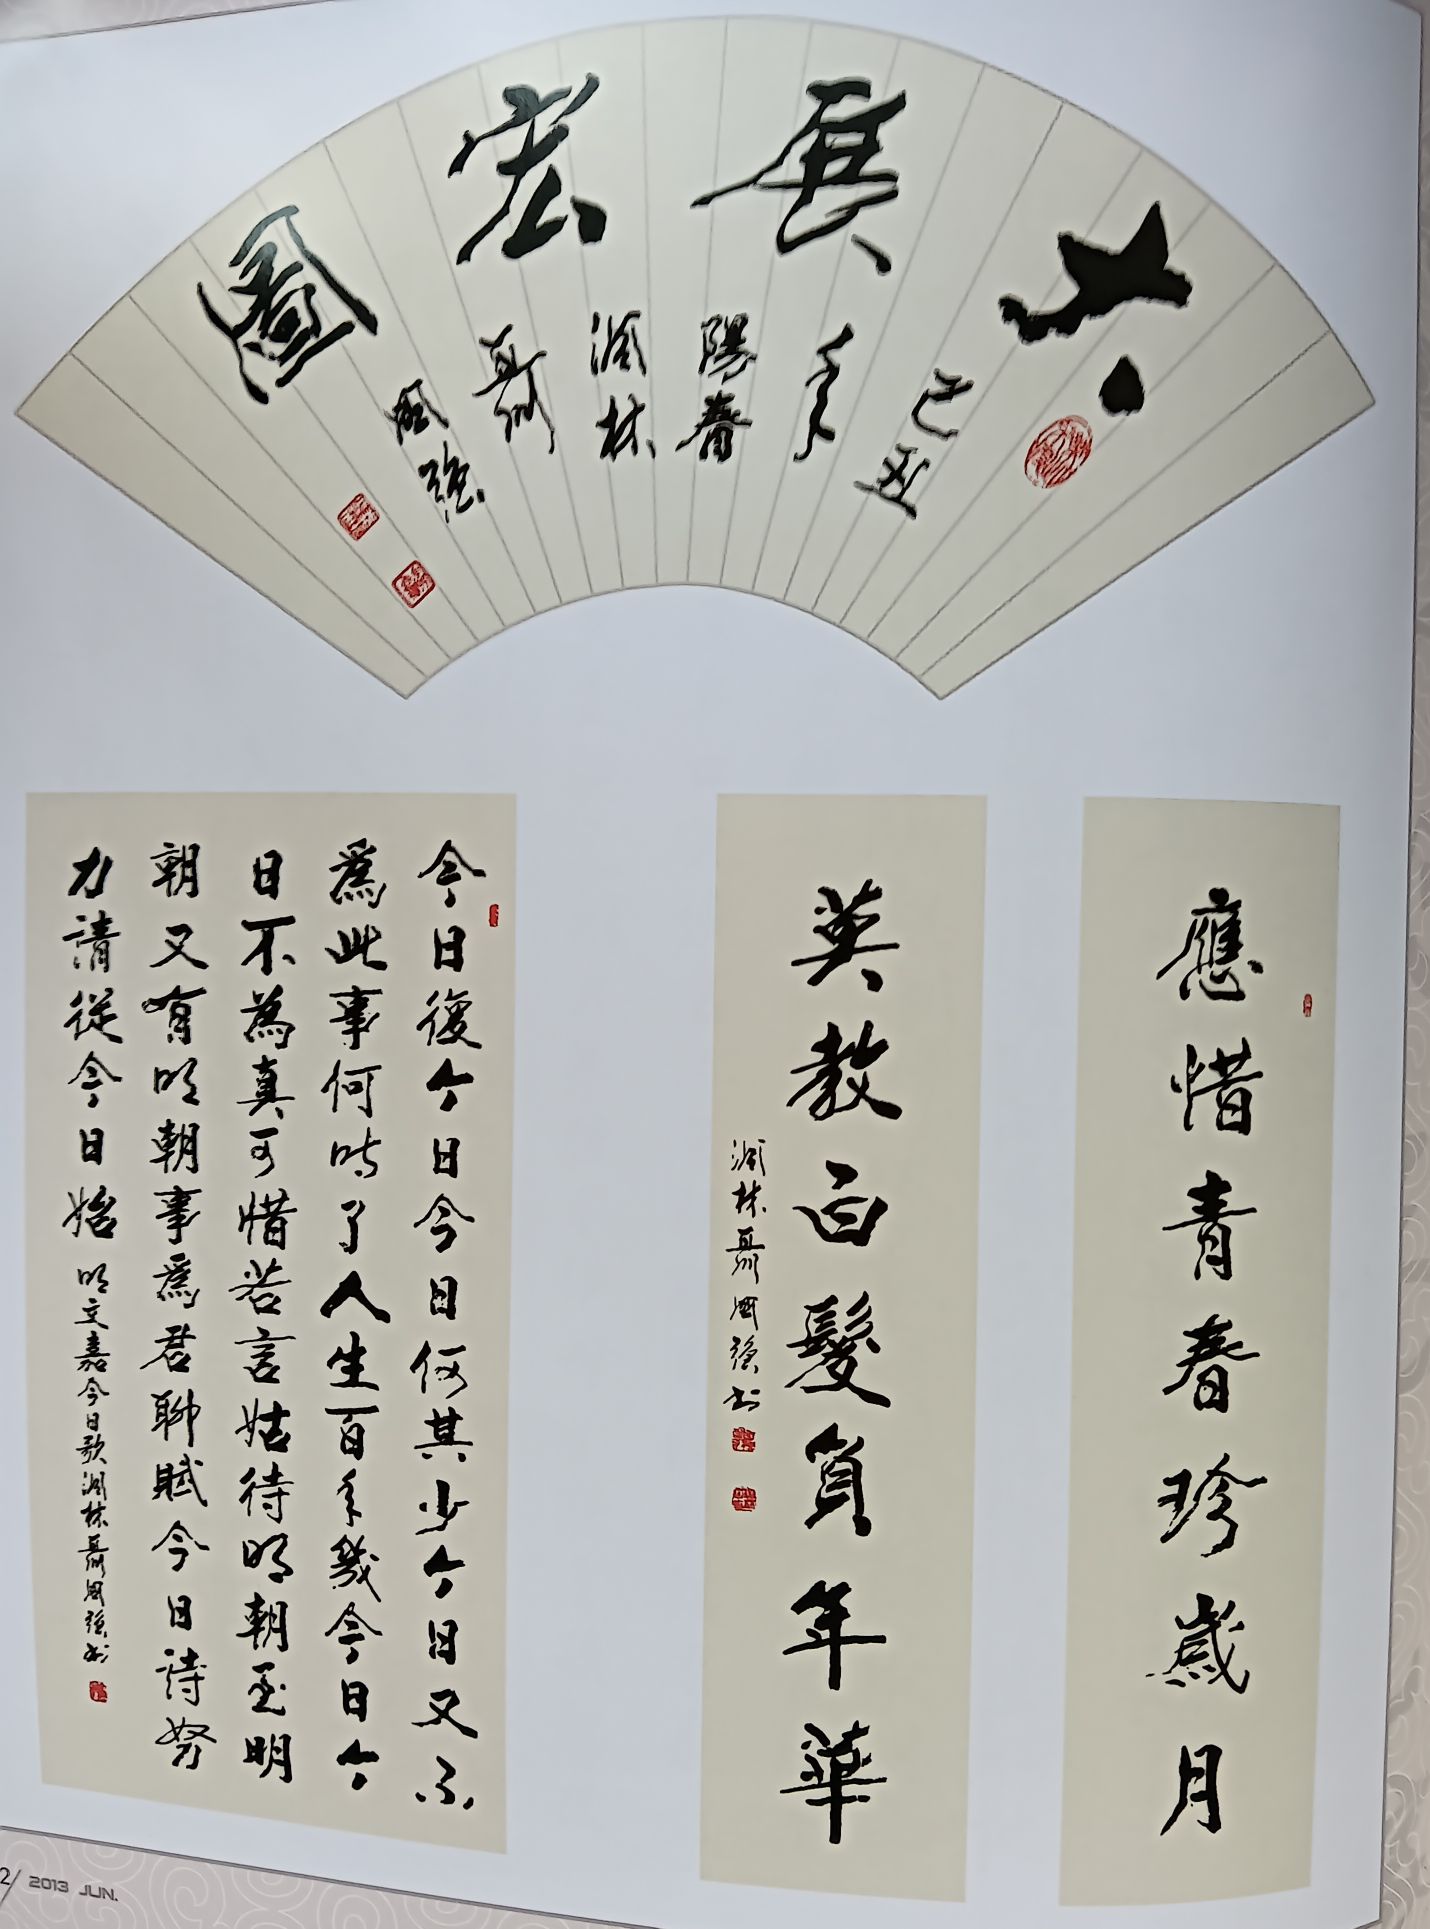 大展宏圖
己丑年陽春澗林聶國強
應惜青春珍歲月
莫教白髮負年華
澗林聶國強書
今日復今日今日何其少今日又不
爲此事何時了人生百年幾今日今
日不為真可惜若言姑待明朝至明
朝又有明朝事爲君聊賦今日詩努
力請從今日始明文嘉今日歌澗林聶國強書
2/ 2013 JUN.